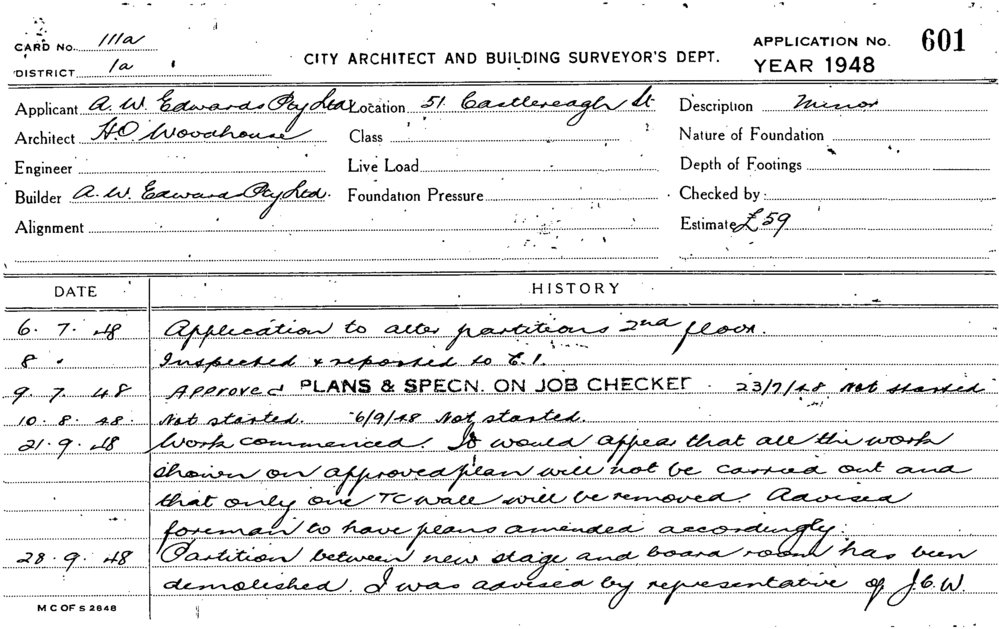 CARD No. 111a
DISTRICT 1a
CITY ARCHITECT AND BUILDING SURVEYOR'S DEPT.
APPLICATION No. 601
YEAR 1948
Applicant A. W. Edwards Pty Ltd Location 51 Castlereagh St Description Minor
Architect H.O Woodhouse Class Nature of Foundation
Engineer Live Load Depth of Footings
Builder A. W. Edwards Pty Ltd. Foundation Pressure Checked by
Alignment Estimate £59
DATE HISTORY
6. 7. 48 Application to alter partitions 2nd floor.
8 " Inspected & reported to C.I.
9. 7. 48 Approved PLANS & SPECN. ON JOB CHECKED 23/7/48 Not started
10. 8. 48. Not started. 6/9/48 Not started.
21. 9. 48 Work commenced. It would appear that all the work
shown on approved plan will not be carried out and
that only one TC wall will be removed. Advised
foreman to have plans amended accordingly.
28. 9. 48 Partition between new stage and board room has been
demolished. I was advised by representative of J.C.W.
M C OF S 2848